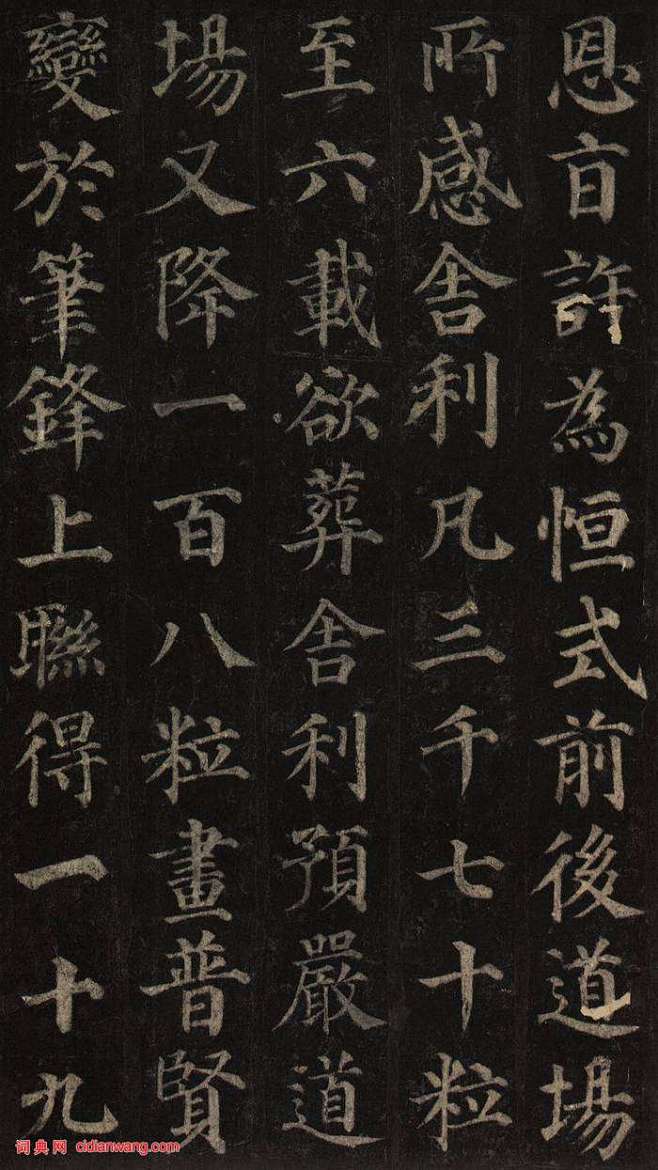 恩旨許為恒式前後道場
所感舍利凡三千七十粒
至六載欲葬舍利預嚴道
場又降一百八粒畫普賢
變於筆鋒上聯得一十九
词典网 cidianwang.com